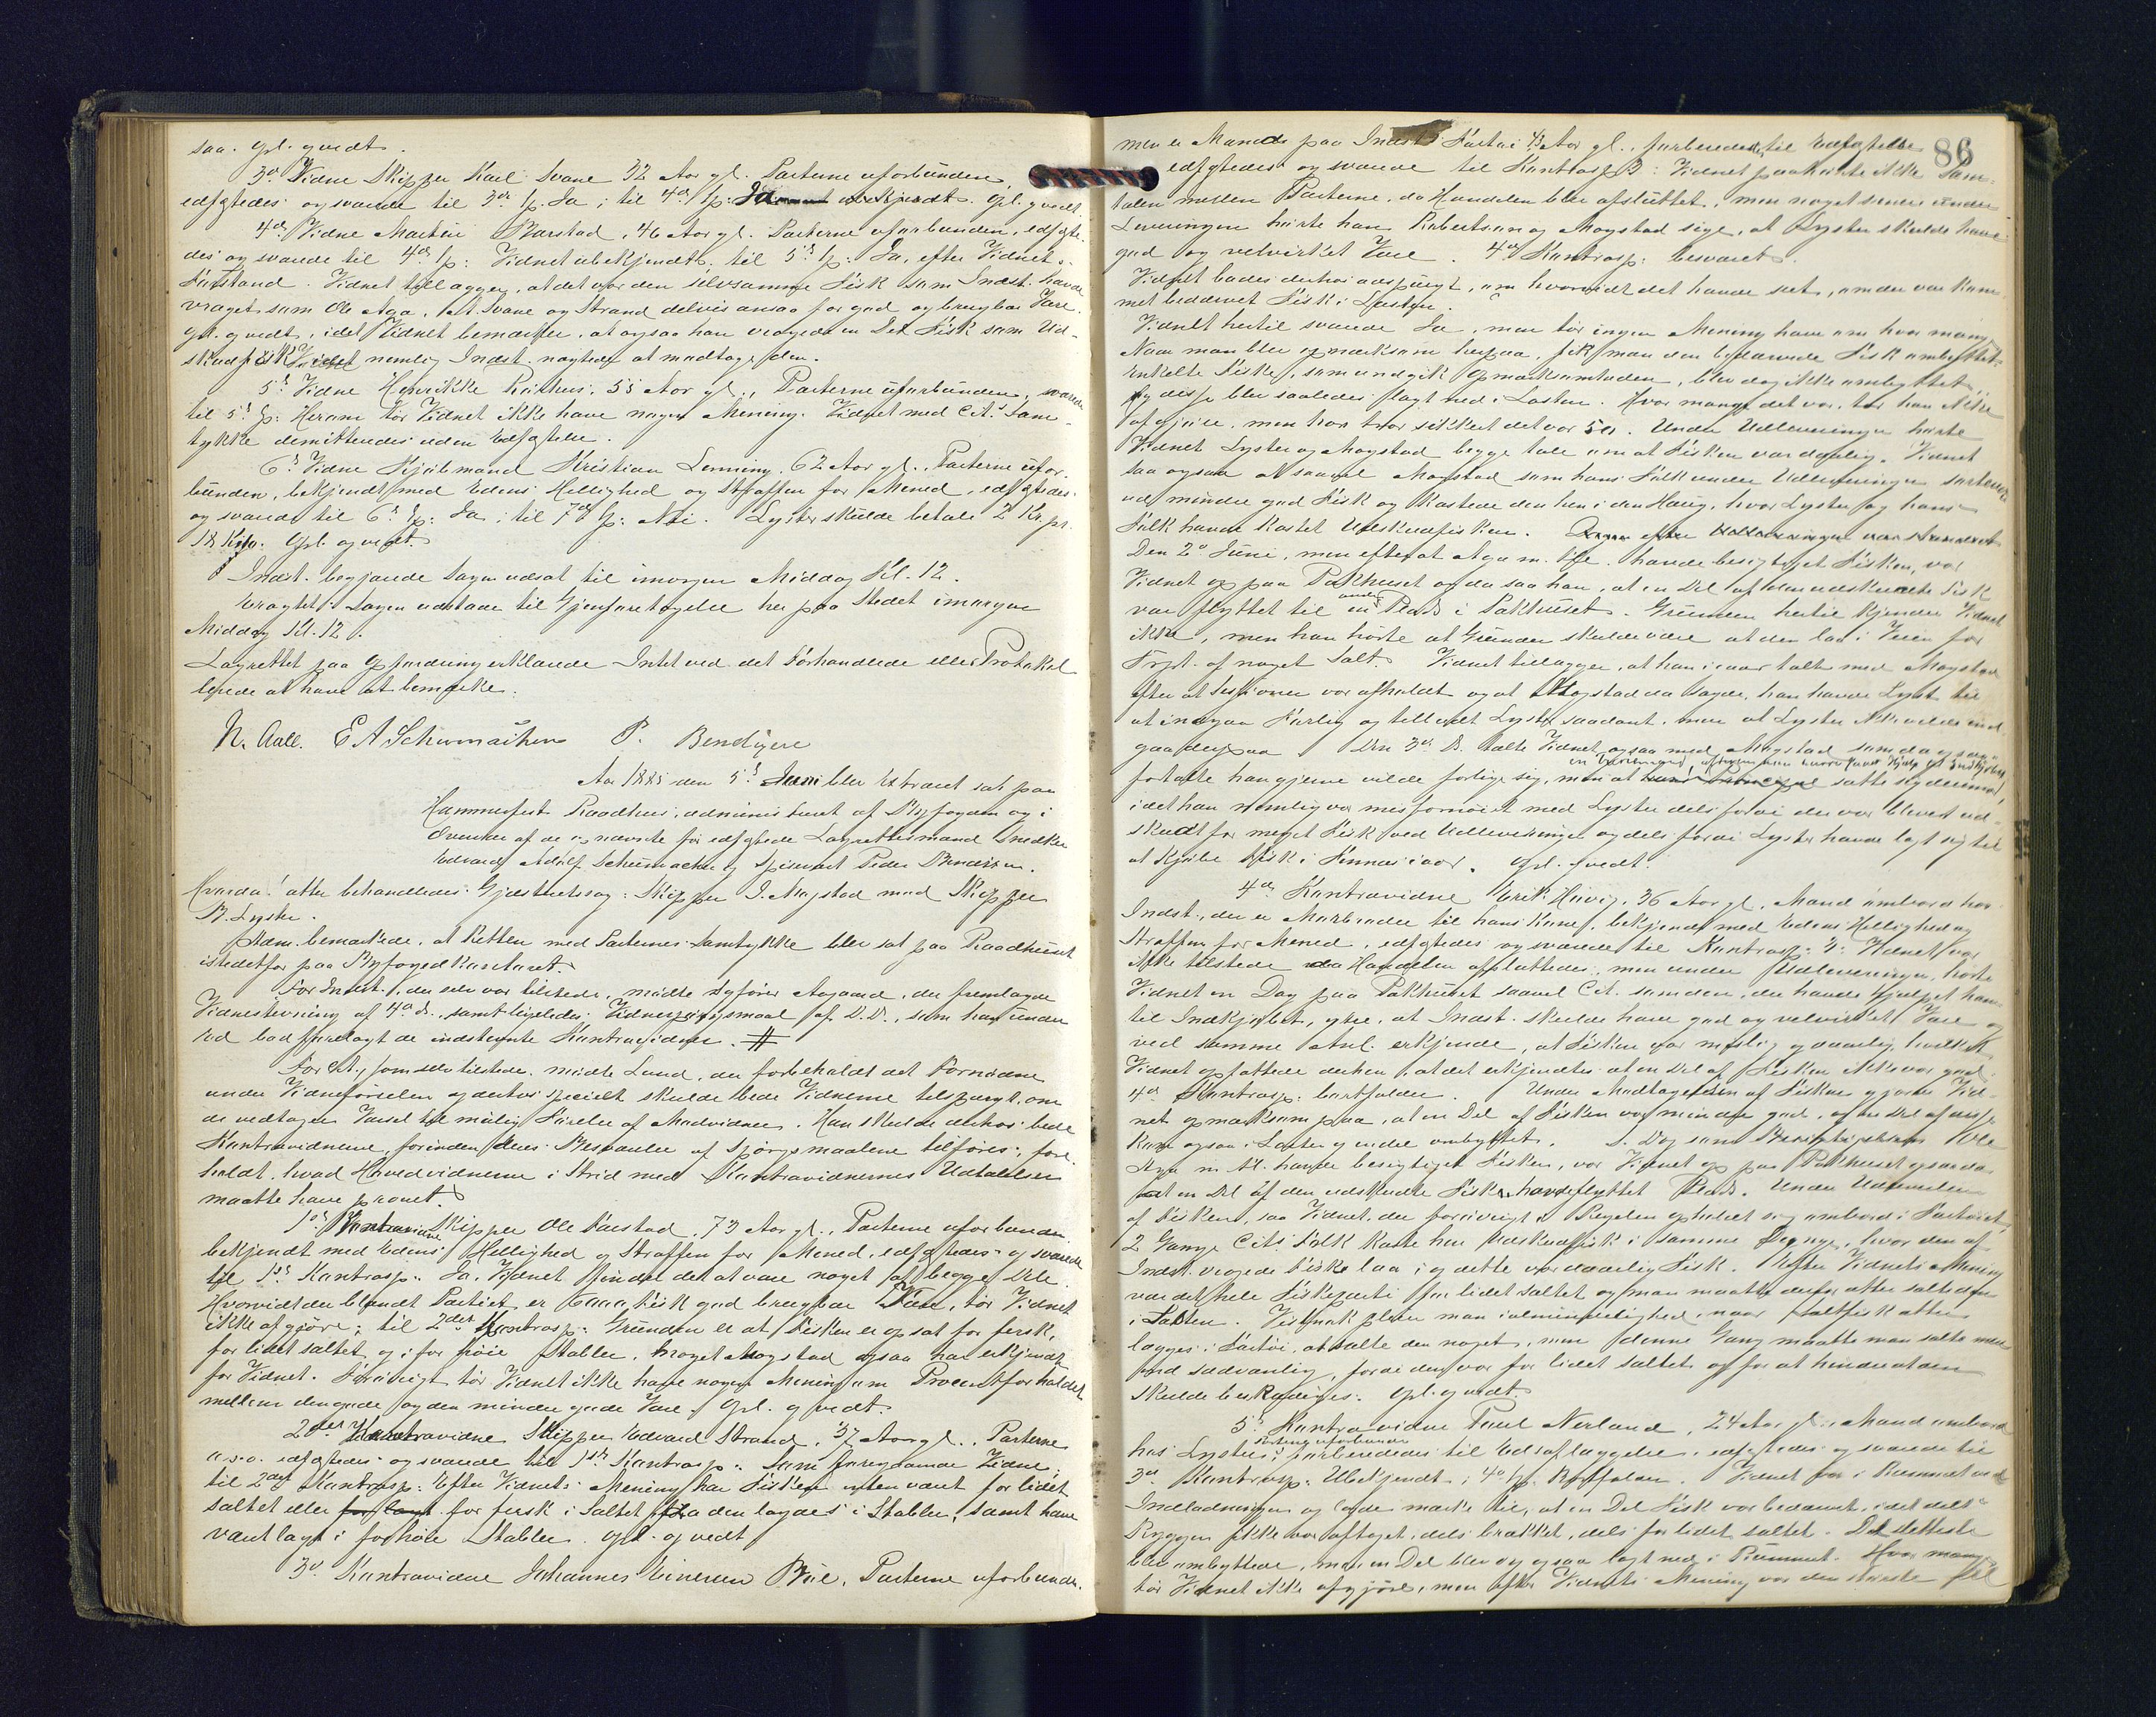 saa. Opl. og vedt.
3die Vidne Skipper Karl Svane 32 Aar gl. Parterne uforbunden,
edfæstedes og svarede til 3die Sp. Ja; til 4de Sp: Ja ubekjendt. Opl. og vedt.
4de Vidne Martin Barstad, 46 Aar gl. Parterne uforbunden, edfæste-
des og svarede til 4de Sp: Vidnet ubekjendt; til 5te Sp: Ja, efter Vidnets
Forstand. Vidnet tillægger, at det var den selvsamme Fisk som Indst. havde
vraget som Ole Aga, Karl Svane og Strand delvis ansaa for god og brugbar Vare.
Opl. og vedt, idet Vidnet bemærker, at ogsaa han vragede en Del Fisk som Ud-
skudsfisk nemlig Indst. nægtede at modtage den.
5te Vidne Henrikke 55 Aar gl., Parterne uforbunden, svarede
til 5te Sp: Herom tør Vidnet ikke have nogen Mening. Vidnet med Cit.s Sam-
tykke demitteredes uden Edfæstelse.
6te Vidne Kjøbmand Kristian Lenning, 62 Aar gl., Parterne ufor-
bunden, bekjendt med Edens Hellighed og Straffen for Mened, edfæstedes
og svarede til 6te Sp: Ja; til 7de Sp: Nei. Lyster skulde betale 2 Kr. pr.
18 Kilo. Opl. og vedt.
Indst. begjærede Sagen udsat til imorgen Middag Kl. 12.
Eragtet: Sagen udstaar til Gjenforetagelse her paa Stedet imorgen
Middag Kl. 12.
Lagrettet paa Opfordring erklærede Intet ved det Forhandlede eller Protokol-
lerede at have at bemærke.
N. Aall. E A Schumacher P. Bendixen
Aar 1885 den 5te Juni blev Extraret sat paa
Hammerfest Raadhus, administreret af Byfogden og i
Overvær af de opnævnte før edfæstede Lagrettesmænd Snedker
Edvard Adolf Schumacher og Spisevært Peder Bendixen.
Hvorda! atter behandledes Gjæsteretssag: Skipper J. Mogstad mod Skipper
B. Lyster.
Adm. bemærkede, at Retten med Parternes Samtykke blev sat paa Raadhuset
istedetfor paa Byfogedkontoret.
For Indst., der selv var tilstede, mødte Sagfører Aagaard, der fremlagde
Vidnestevning af 4de ds., samt ligeledes Vidnespørgsmaal af D.D., som han under
Ed bad forelagt de indstevnte Kontravidner. #
For Cit., som selv tilstede, mødte Lund, der forbeholdt det Fornødne
under Vidneførselen og derhos specielt skulde bede Vidnerne tilspurgt, om
de vedtager Varsel til mulig Førelse af Modvidner. Han skulde derhos bede
Kontravidnerne, forinden deres Besvarelse af Spørgsmaalene tilføres, fore-
holdt, hvad Hovedvidnerne i Strid med Kontravidnernes Udtalelser
maatte have prøvet.
1ste Kontravidne Skipper Ole Færstad, 73 Aar gl., Parterne uforbunden
bekjendt med Edens Hellighed og Straffen for Mened, edfæstedes og svarede
til 1ste Kontrasp: Ja, Vidnet finder det at være noget af begge Dele.
Hvorvidt der blandt Partiet er Fisk god brugbar Vare, tør Vidnet
ikke afgjøre; til 2det Kontrasp: Grunden er at Fisken er opsat for fersk,
for lidet saltet og i for høie Stabler, hvoget Mogstad ogsaa har erkjendt
for Vidnet. Forøvrigt tør Vidnet ikke have nogen Mening om Procentforholdet
mellem den gode og den mindre gode Vare. Opl. og vedt.
2det Kontravidne Skipper Edvard Strand, 37 Aar gl., Parterne
u.s.o. edfæstedes og svarede til 1ste Kontrasp: Som foregaaende Vidne;
til 2det Kontrasp: Efter Vidnets Mening har Fisken enten været for lidet
saltet eller for fersk i Saltet da den lagdes i Stabler, samt have
været lagt i for høie Stabler. Opl. og vedt.
3die Kontravidne Johannes Einersen Bue, Parterne uforbunden,
86
men er Mands paa Indst.s Fartøi 43 Aar gl., forberededes til Edfæstelse
edfæstedes og svarede til Kontrasp. 3: Vidnet paahørte ikke Sam-
talen mellem Parterne, da Handelen blev afsluttet, men noget senere under
Leveringen hørte han Robertsen og Mogstad sige, at Lyster skulde have
god og velvirket Vare. 4de Kontrasp: besvaret.
Vidnet bades derhos adspurgt, om hvorvidt det havde seet, om der var kom-
met bedærvet Fisk i Lasten.
Vidnet hertil svarede Ja, men tør ingen Mening have om hvor mange.
Naar man blev opmærksom herpaa, fik man den bedærvede Fisk ombyttet.
Enkelte Fiske, som undgik Opmærksomheden, blev dog ikke ombyttet,
og disse blev saaledes lagt ned i Lasten. Hvor mange det var, tør han ikke
afgjøre, men han tror sikkert det var 50. Under Udleveringen hørte
Vidnet Lyster og Mogstad begge tale om at Fisken var daarlig. Vidnet
saa ogsaa at saavel Mogstad som hans Folk under Udleveringen sorterede
ud mindre god Fisk og kastede den hen i den Haug, hvor Lyster og hans
Folk havde kastet Udskudfisken.
Den 2den Juni, men efterat Aga m. Fl. havde besigtiget Fisken, var
Vidnet op paa Pakhuset og da saa han, at en Del af den udskudte Fisk
var flyttet til en anden Plads i Pakhuset. Grunden hertil kjender Vidnet
ikke, men han hørte at Grunden skulde være at den laa i Veien for
Trpt. af noget Salt. Vidnet tillægger, at han igaar talte med Mogstad
efter at Sessionen var afholdt og at Mogstad da sagde, han havde Lyst til
at indgaa Forlig og tilbød Lyster saadant, men at Lyster ikke vilde ind-
gaa derpaa. Den 3die ds. talte Vidnet ogsaa med Mogstad som da ogsaa
fortalte han gjerne vilde forlige sig, men at satte sig derimod,
idet han nemlig var misfornøiet med Lyster dels fordi der var blevet ud-
skudt for meget Fisk ved Udleveringen og dels fordi Lyster havde lagt sig til
at kjøbe Fisk i Finnes iaar. Opl. vedt.
4de Kontravidne Erik Huvig, 36 Aar gl., Mand ombord hos
Indst., der er Morbroder til hans Kone, bekjendt med Edens Hellighed og
Straffen for Mened, edfæstedes og svarede til Kontrasp. 3: Vidnet var
ikke tilstede da Handelen afsluttedes, men under Udleveringen, hørte
Vidnet en Dag paa Pakhuset saavel Cit. som den, der havde hjulpet ham
til Indkjøbet, ytre, at Indst. skulde have god og velvirket Vare og
ved samme Anl. erkjende, at Fisken var maslig og daarlig, hvilket
Vidnet opfattede derhen, at det erkjendtes at en Del af Fisken ikke var god.
4de Kontrasp: bortfalder. Under Modtagelsen af Fisken gjorde Vid-
net opmærksom paa, at en Del af Fisken var mindre god, og en Del af disse
kom ogsaa i Lasten og endel ombyttet. S. Dag som Ole
Aga m. Fl. havde besigtiget Fisken, var Vidnet op paa Pakhuset og saa da
at en Del af den udskudte Fisk havde flyttet Plads. Under Udleveringen
af Fisken, saa Vidnet, der forøvrigt i Regelen opholdt sig ombord i Fartøiet,
2 Gange Cits Folk kaste hen Udskudfisk i samme Dynge, hvor den af
Indst. vragede Fisk laa i og dette var daarlig Fisk. Efter Vidnets Mening
var det hele Fiskeparti for lidet saltet og man maatte derfor atter salte den
i Lasten. Vistnok pleier man i almindelighed, naar Saltfisk atter
lægges i Fartøi, at salte den noget, men denne Gang maatte man salte mere
end sædvanlig, fordi den var for lidet saltet og for at hindre at den
skulde beskadiges. Opl. og vedt.
5te Kontravidne Paul Nerland, 24 Aar gl., Mand ombord
hos Lyster, forberededes til Edsaflæggelse, edfæstedes og svarede til
3die Kontrasp: Ubekjendt; 4de Sp. Bortfalder. Vidnet var i Rummet ved
Indladningen og lagde mærke til, at en Del Fisk var bedærvet, idet dels
Ryggen ikke var aftaget, dels brækket, dels for lidet saltet. Det sletteste
blev ombyttede, men en Del blev dog ogsaa lagt ned i Rummet. Hvor mange
tør Vidnet ikke afgjøre, men efter Vidnets Mening var den største Del